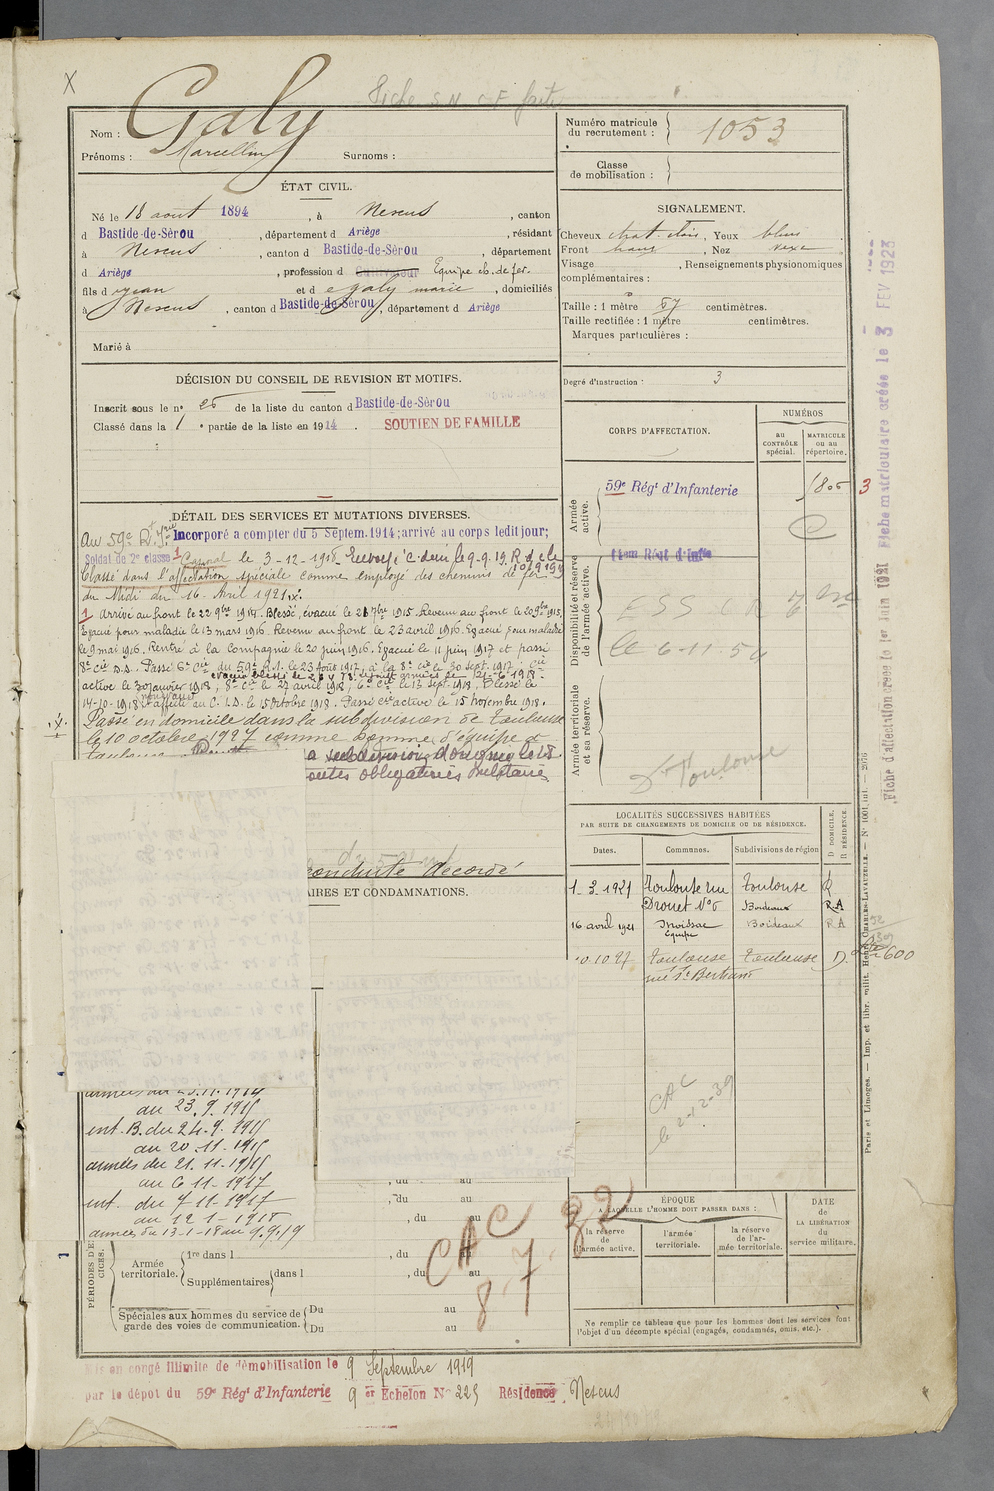 X
Fiche S.N.C.F. faite
Nom : Galy
Prénoms : Marcellin Surnoms :
Numéro matricule
du recrutement : 1053
Classe
de mobilisation :
ÉTAT CIVIL.
Né le 18 août 1894, à Nescus, canton
d Bastide-de-Sèrou, département d Ariège, résidant
à Nescus, canton d Bastide-de-Sèrou, département
d Ariège, profession d Cultivateur Equipe ch. de fer.
fils d et d Galy marie, domiciliés
à Nescus, canton d Bastide-de-Sèrou, département d Ariège
Marié à
SIGNALEMENT.
Cheveux chat. clair, Yeux bleus
Front haut, Nez vexe
Visage , Renseignements physionomiques
complémentaires :
Taille : 1 mètre 57 centimètres.
Taille rectifiée : 1 mètre centimètres.
Marques particulières :
Degré d'instruction : 3
DÉCISION DU CONSEIL DE REVISION ET MOTIFS.
Inscrit sous le n° 25 de la liste du canton d Bastide-de-Sèrou
Classé dans la 1 e partie de la liste en 1914. SOUTIEN DE FAMILLE
CORPS D'AFFECTATION.
NUMÉROS
au
CONTRÔLE
spécial.
MATRICULE
ou au
répertoire.
Armée
active.
59e Régt d'Infanterie
1805 3
Disponibilité et réserve
de l'armée active.
Régt d'Infie
le 6-11-54
Armée territoriale
et sa réserve.
Dt Toulouse
DÉTAIL DES SERVICES ET MUTATIONS DIVERSES.
Au 59e R. d'Infie Incorporé a compter du 5 Septem. 1914; arrivé au corps ledit jour;
Soldat de 2e classe Caporal le 3-12-1918. Renvoyé
Classé dans l'affectation spéciale comme employé des chemins de fer
du Midi du 16 Avril 1921.
1 Arrivé au front le 22 9bre 1914. Blessé, évacué le 21 7bre 1915. Revenu au front le 20 9bre 1915.
Evacué pour maladie le 13 mars 1916. Revenu au front le 23 avril 1916. Evacué pour maladie
le 9 mai 1916. Rentré à la Compagnie le 20 juin 1916. Evacué le 11 juin 1917 et passé
8e Cie D.D. Passé 6e Cie du 59e R.I. le 23 Août 1917, à la 8e Cie le 30 sept. 1917, Cie
active le 30 janvier 1918, 8e Cie le 27 avril 1918, 6e Cie le 13 sept. 1918, Blessé le
14-10-1918 non évacué affecté au C.I.D. le 15 octobre 1918. Passé Cie active le 15 novembre 1918.
Passé en domicile dans la subdivision de Toulouse
le 10 octobre 1927 comme homme d'équipe à
a subdivision
outes obligations militaires
conduite accordé
AIRES ET CONDAMNATIONS.
LOCALITÉS SUCCESSIVES HABITÉES
PAR SUITE DE CHANGEMENTS DE DOMICILE OU DE RÉSIDENCE.
Dates. Communes. Subdivisions de région D DOMICILE. R RÉSIDENCE
1-3.1921 Toulouse rue Toulouse R
Drouet N°6 Bordeaux R A
16 avril 1921 Moissac Bordeaux R A
Equipe
10.10 27 Toulouse Toulouse D. 600
rue St Bertrand
CAC
le 2-12-39
armées du 25.11.1914
au 23.9.1915
int. B. du 24.9.1915
au 20.11.1915
armées du 21.11.1915
au 6 11-1917
int. du 7 11-1917
au 12 1-1918
armées du 13-1-18 au 9.9.19
, du au
, du au
, du au
CAC 32
8 7
PÉRIODES D'EXERCICES.
Armée
territoriale.
1re dans l , du au
Supplémentaires dans l , du au
Spéciales aux hommes du service de
garde des voies de communication.
Du au
Du au
ÉPOQUE
A LAQUELLE L'HOMME DOIT PASSER DANS :
la réserve
de
l'armée active.
l'armée
territoriale.
la réserve
de l'ar-
mée territoriale.
DATE
de
LA LIBÉRATION
du
service militaire.
Ne remplir ce tableau que pour les hommes dont les services font
l'objet d'un décompte spécial (engagés, condamnés, omis, etc.).
Mis en congé illimité de démobilisation le 9 Septembre 1919
par le dépôt du 59e Régt d'Infanterie 9 er Echelon N° 225 Résidence Nescus
Fiche d'affectation créée le 1er Juin 1921 Fiche matriculaire créée le 3 FEV 1923
Paris et Limoges. — Imp. et libr. milit. Henri CHARLES-LAVAUZELLE. — N° 1001 int. — 2676